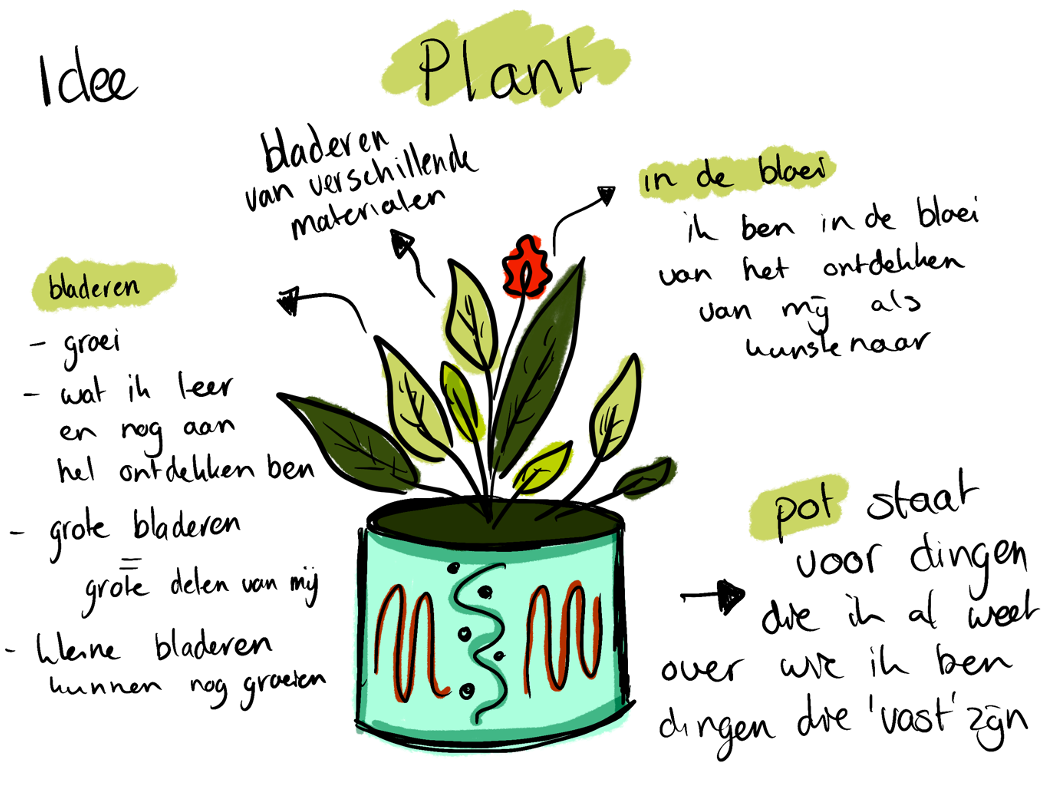 Idee
Plant
bladeren
van verschillende
materialen
in de bloei
ik ben in de bloei
van het ontdekken
van mij als
kunstenaar
bladeren
- groei
- wat ik leer
en nog aan
het ontdekken ben
- grote bladeren
=
grote delen van mij
- kleine bladeren
kunnen nog groeien
pot staat
voor dingen
die ik al weet
over wie ik ben
dingen die 'vast' zijn